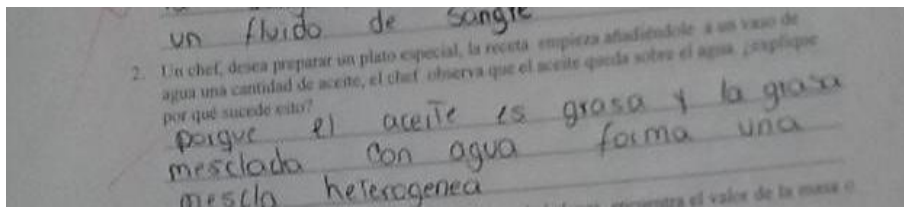 un fluido de sangre
2. Un chef, desea preparar un plato especial, la receta empieza añadiéndole a un vaso de
agua una cantidad de aceite, el chef observa que el aceite queda sobre el agua. ¿explique
por qué sucede esto?
porque el aceite es grasa y la grasa
mesclada con agua forma una
mescla heterogenea
encuentra el valor de la masa o